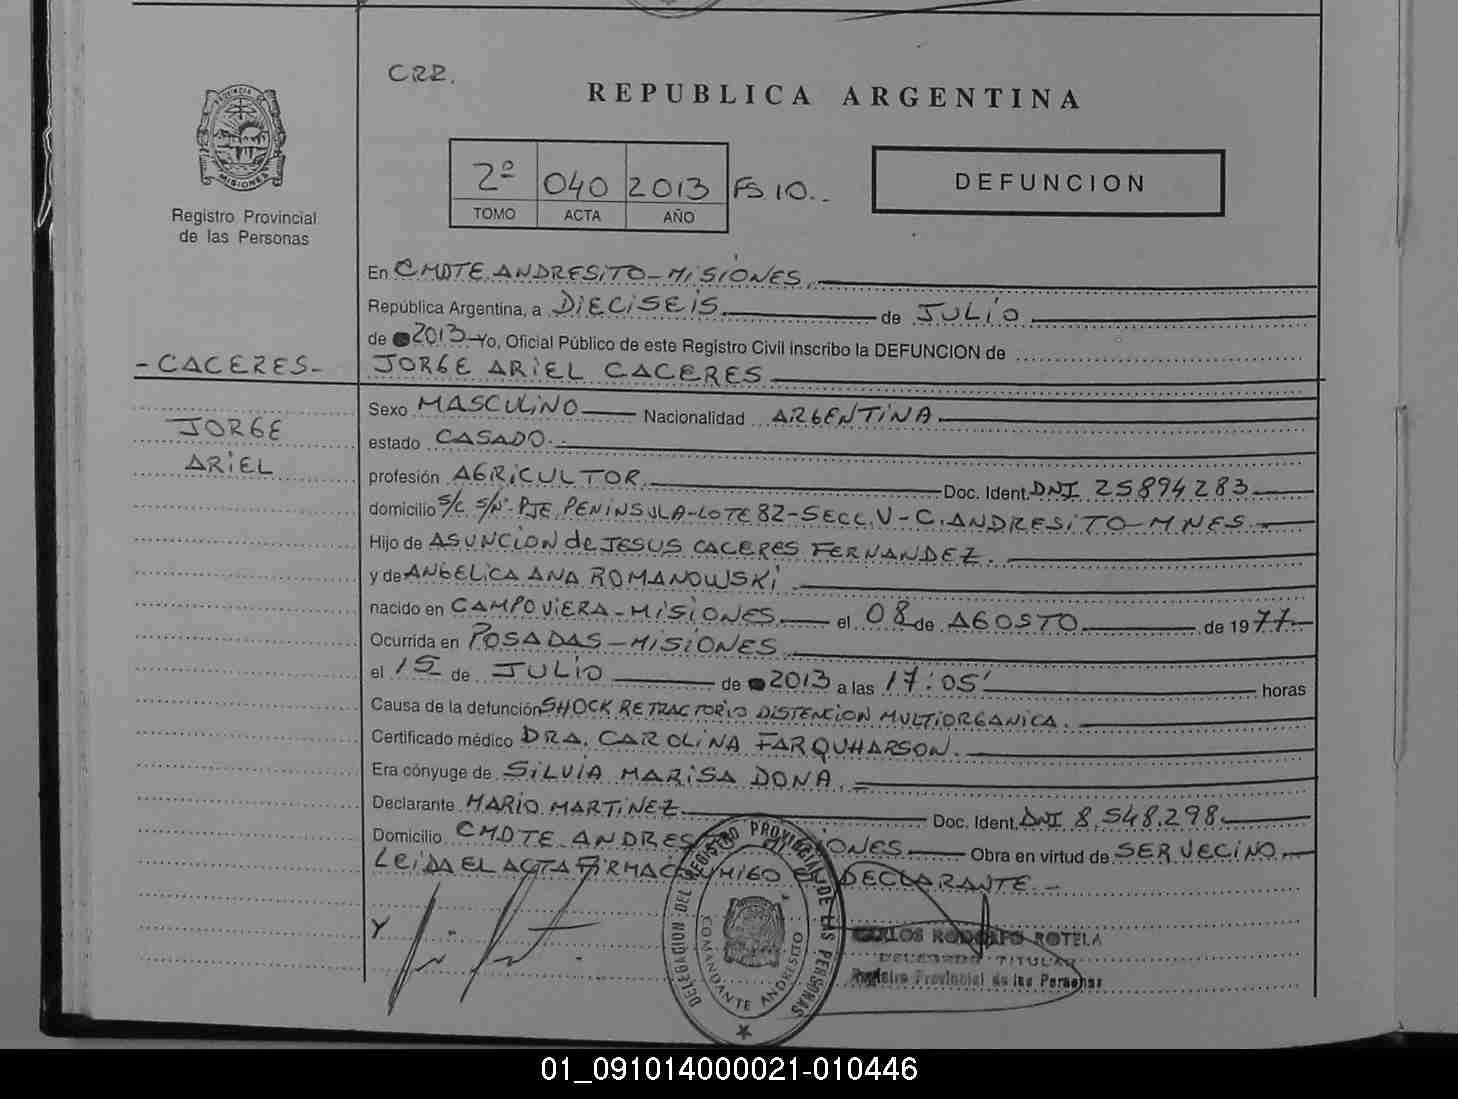 CRR.
REPUBLICA ARGENTINA
PROVINCIA DE
MISIONES
Registro Provincial
de las Personas
2º 040 2013 FS 10..
TOMO ACTA AÑO
DEFUNCION
En CMDTE ANDRESITO-MISIONES
República Argentina, a DIECISEIS de JULIO
de 2013 Yo, Oficial Público de este Registro Civil inscribo la DEFUNCION de
-CACERES- JORGE ARIEL CACERES
Sexo MASCULINO Nacionalidad ARGENTINA
JORGE
estado CASADO.
ARIEL
profesión AGRICULTOR Doc. Ident. DNI 25894283
domicilio S/C S/Nº-PJE PENINSULA-LOTE 82-SECC.V-C.ANDRESITO-MNES.
Hijo de ASUNCION de JESUS CACERES FERNANDEZ.
y de ANGELICA ANA ROMANOWSKI
nacido en CAMPO VIERA-MISIONES el 08 de AGOSTO de 1977
Ocurrida en POSADAS-MISIONES
el 15 de JULIO de 2013 a las 17:05' horas
Causa de la defunción SHOCK RETRACTORIO DISTENCION MULTIORGANICA.
Certificado médico DRA. CAROLINA FARQUHARSON.
Era cónyuge de SILVIA MARISA DONA.
Declarante MARIO MARTINEZ Doc. Ident. DNI 8.548.298
Domicilio CMDTE ANDRES IONES Obra en virtud de SER VECINO
LEIDA EL ACTA FIRMA CONMIGO EL DECLARANTE.-
Y
DELEGACION DEL REGISTRO PROVINCIAL DE LAS PERSONAS
COMANDANTE ANDRESITO
CARLOS RODOLFO ROTELA
DELEGADO TITULAR
Registro Provincial de las Personas
01_091014000021-010446